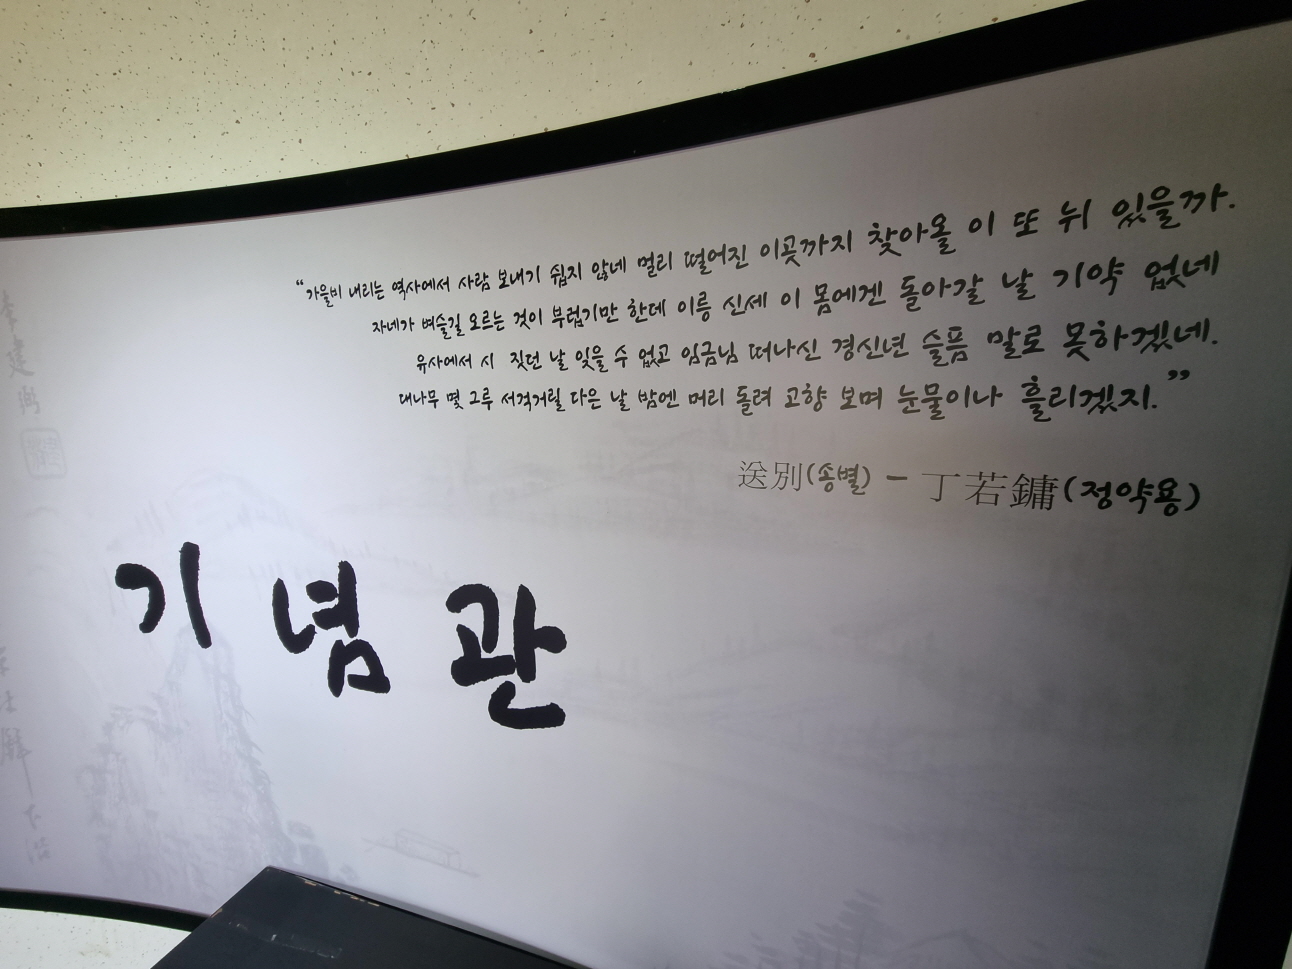 “가을비 내리는 역사에서 사람 보내기 쉽지 않네 멀리 떨어진 이곳까지 찾아올 이 또 뉘 있을까.
자네가 벼슬길 오르는 것이 부럽기만 한데 이릉 신세 이 몸에겐 돌아갈 날 기약 없네
유사에서 시 짓던 날 잊을 수 없고 임금님 떠나신 경신년 슬픔 말로 못하겠네.
대나무 몇 그루 서걱거릴 다은 날 밤엔 머리 돌려 고향 보며 눈물이나 흘리겠지.”
送別(송별) - 丁若鏞(정약용)
기념관